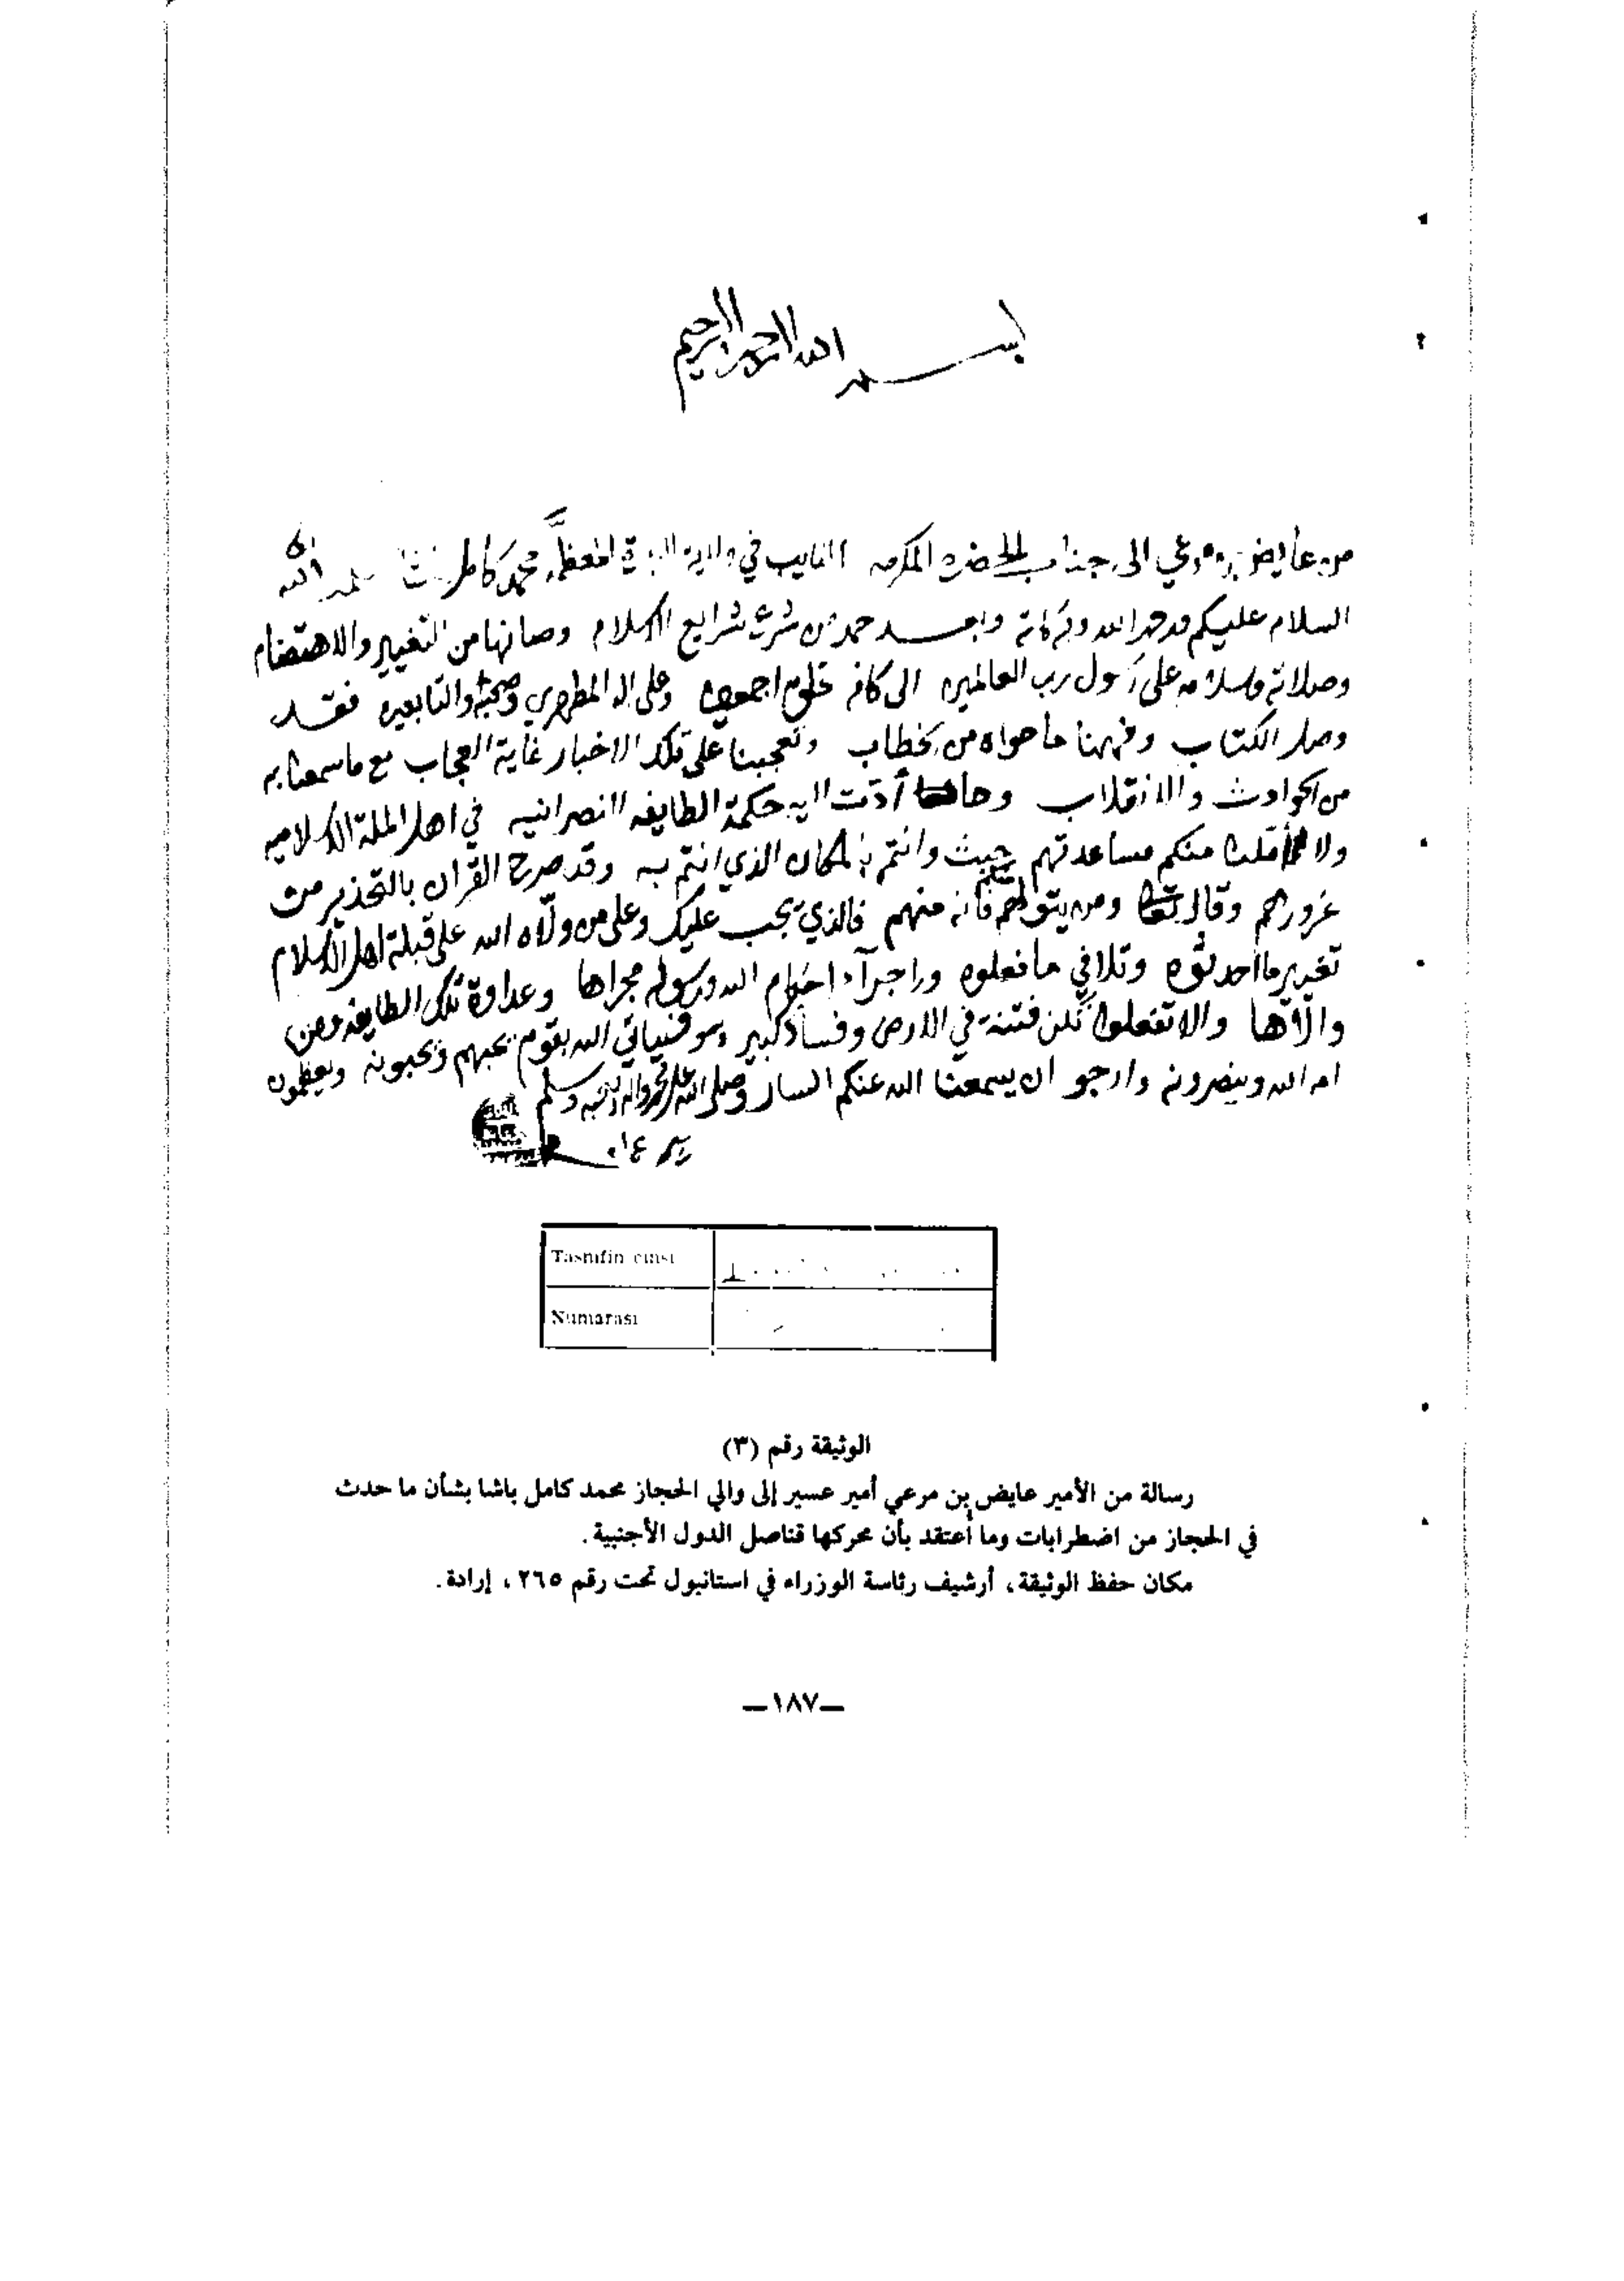 بسم الله الرحمن الرحيم
من عايض بن مرعي الى جناب الحضرة المكرمه النايب في المعظم محمد كامل باشا سلمه الله
السلام عليكم ورحمة الله وبركاته وبعد حمد من شرع شرايع الاسلام وصانها من التغيير والاهتضام
وصلاته وسلامه على رسول رب العالمين الى كافة خلقه اجمعين وعلى اله المطهرين وصحبه والتابعين فقد
وصل الكتاب وفهمنا ما حواه من الخطاب وتعجبنا على تلك الاخبار غاية العجاب مع ما سمعنا به
من الحوادث والانقلاب وحاشا أدت اليه حكمة الطايفه النصرانيه في اهل الملة الاسلاميه
ولا منكم مساعدتهم حيث وانتم بالمكان الذي انتم به وقد صرح القران بالتحذير من
غرورهم وقال تعالى ومن يتولهم منكم فانه منهم فالذي يجب عليك وعلى من ولّاه الله على قبلة اهل الاسلام
تغيير ما احدثوه وتلافي ما فعلوه واجرآء احكام الله ورسوله مجراها وعداوة تلك الطايفه ومن
والاها والا تفعلوا تكن فتنة في الارض وفساد كبير وسوف ياتي الله بقوم يحبهم ويحبونه ويعظمون
امر الله وينصرونه وارجو ان يسمعنا الله عنكم السار وصلى الله على محمد واله وصحبه وسلم
Tasnifin cinsi
Numarası
الوثيقة رقم (٣)
رسالة من الأمير عايض بن مرعي أمير عسير إلى والي الحجاز محمد كامل باشا بشأن ما حدث
في الحجاز من اضطرابات وما أعتقد بأن محركها قناصل الدول الأجنبية.
مكان حفظ الوثيقة، أرشيف رئاسة الوزراء في استانبول تحت رقم ٢٦٥، إرادة.
—١٨٧—